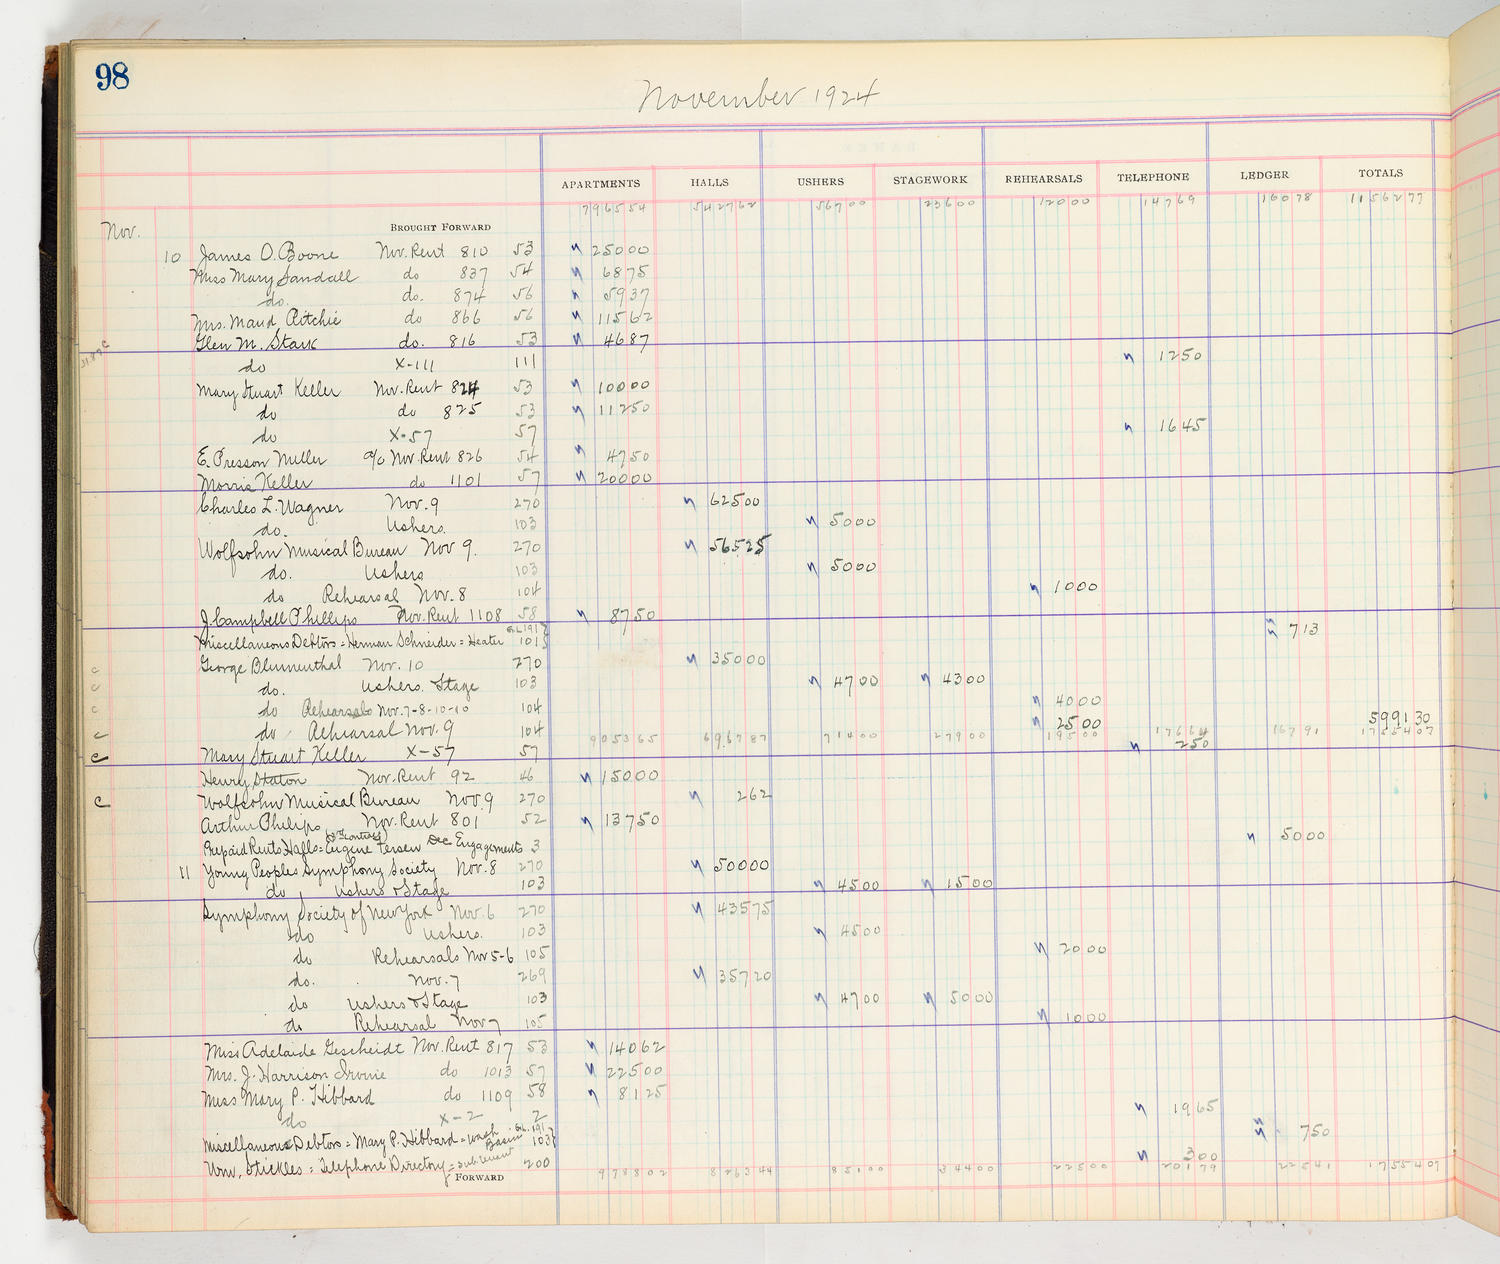 98
November 1924
APARTMENTS HALLS USHERS STAGEWORK REHEARSALS TELEPHONE LEDGER TOTALS
796554 542762 56700 23600 12000 14769 16078 1156277
Nov. BROUGHT FORWARD
10 James O. Boone Nov. Rent 810 53 25000
Miss Mary Jandall do 837 54 6875
do. do. 874 56 5937
Mrs. Maud Ritchie do 866 56 11562
Glen M. Stark do. 816 53 4687
do X-111 111 1250
Mary Stuart Keller Nov. Rent 824 53 10000
do do 825 53 11250
do X-57 57 1645
E. Presson Miller a/c Nov. Rent 826 54 4750
Morris Keller do 1101 57 20000
Charles L. Wagner Nov. 9 270 62500
do. Ushers. 103 5000
Wolfsohn Musical Bureau Nov 9. 270 56525
do. Ushers 103 5000
do Rehearsal Nov. 8 104 1000
J. Campbell Phillips Nov. Rent 1108 58 8750
Miscellaneous Debtors = Herman Schneider = Heater G.L. 191 101 713
George Blumenthal Nov. 10 270 35000
do. Ushers. Stage 103 4700 4300
do Rehearsals Nov. 7-8-10-10 104 4000
do Rehearsal Nov. 9 104 2500 599130
905365 696787 71400 27900 19500 17664 16791 1755407
Mary Stuart Keller X-57 57 250
Henry Staton Nov. Rent 92 46 15000
Wolfsohn Musical Bureau Nov. 9 270 262
Arthur Philips Nov. Rent 801 52 13750
Prepaid Rents Halls = Eugene Fersen Dec Engagements 3 5000
11 Young Peoples Symphony Society Nov. 8 270 50000
do Ushers & Stage 103 4500 1500
Symphony Society of New York Nov. 6 270 43575
do Ushers. 103 4500
do Rehearsals Nov 5-6 105 2000
do. Nov. 7 269 35720
do Ushers & Stage 103 4700 5000
do Rehearsal Nov 7 105 1000
Miss Adelaide Gescheidt Nov. Rent 817 53 14062
Mrs. J. Harrison Irvine do 1013 57 22500
Miss Mary P. Hibbard do 1109 58 8125
do X-2 2 1965
Miscellaneous Debtors = Mary P. Hibbard = Wash Basin G.L. 191 103 750
Wm. Stickles = Telephone Directory = 200 300
FORWARD 978802 826344 85100 34400 22500 20179 22541 1755407